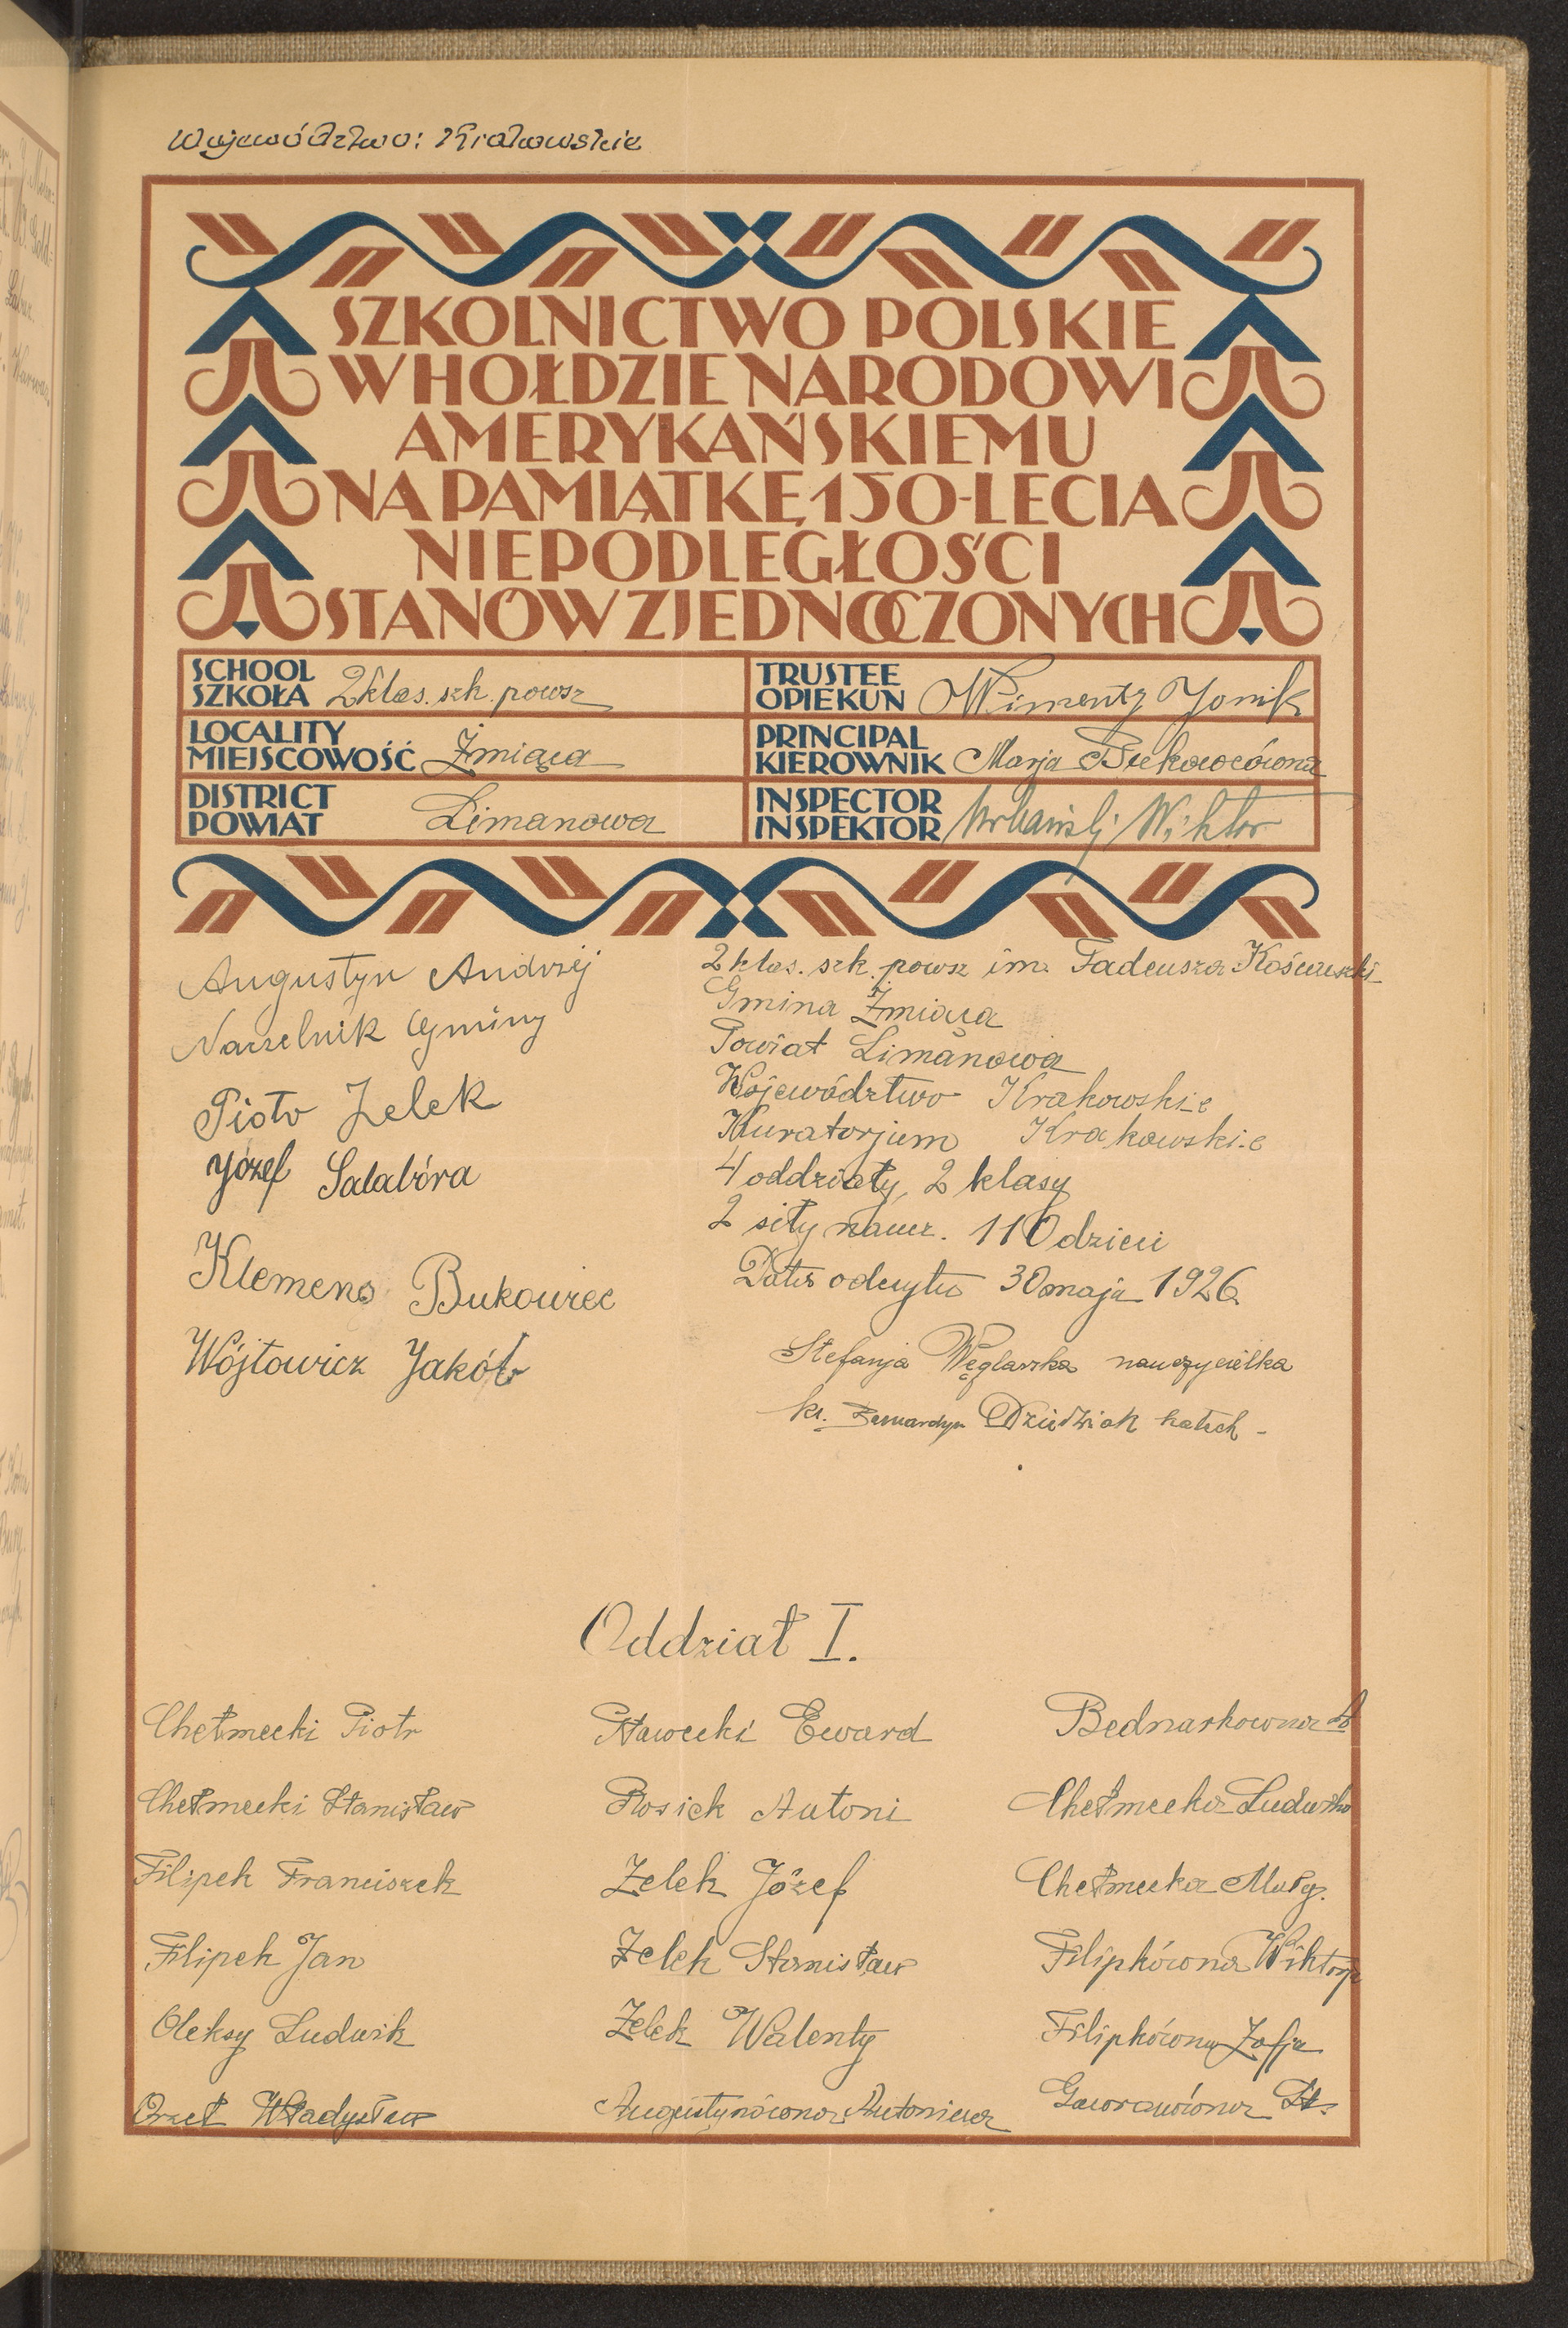 Województwo: Krakowskie
SZKOLNICTWO POLSKIE
W HOŁDZIE NARODOWI
AMERYKAŃSKIEMU
NA PAMIĄTKĘ 150-LECIA
NIEPODLEGŁOŚCI
STANÓW ZJEDNOCZONYCH
SCHOOL
SZKOŁA 2 klas. szk. powsz
TRUSTEE
OPIEKUN Jonik
LOCALITY
MIEJSCOWOŚĆ Żmiąca
PRINCIPAL
KIEROWNIK Marja Bukowcówna
DISTRICT
POWIAT Limanowa
INSPECTOR
INSPEKTOR Wiktor
Augustyn Andrzej
Naczelnik Gminy
Piotr Zelek
Józef Salabóra
Klemens Bukowiec
Wójtowicz Jakób
2 klas. szk. powsz im. Tadeusza Kościuszki
Gmina Żmiąca
Powiat Limanowa
Województwo Krakowskie
Kuratorjum Krakowskie
4 oddziały, 2 klasy
2 siły naucz. 110 dzieci
Data odczytu 30 maja 1926
Stefanja Węglarska nauczycielka
ks. Bernardyn Dziedziak katech.
Oddział I.
Chełmecki Piotr
Chełmecki Stanisław
Filipek Franciszek
Filipek Jan
Oleksy Ludwik
Orzeł Władysław
Pławecki Eward
Rosiek Antoni
Zelek Józef
Zelek Stanisław
Zelek Walenty
Augustynówna Antonina
Bednarkowna
Chełmecka Ludwika
Chełmecka Małg.
Filipkówna Wiktorja
Filipkówna Zofja
Gaworawówna St.